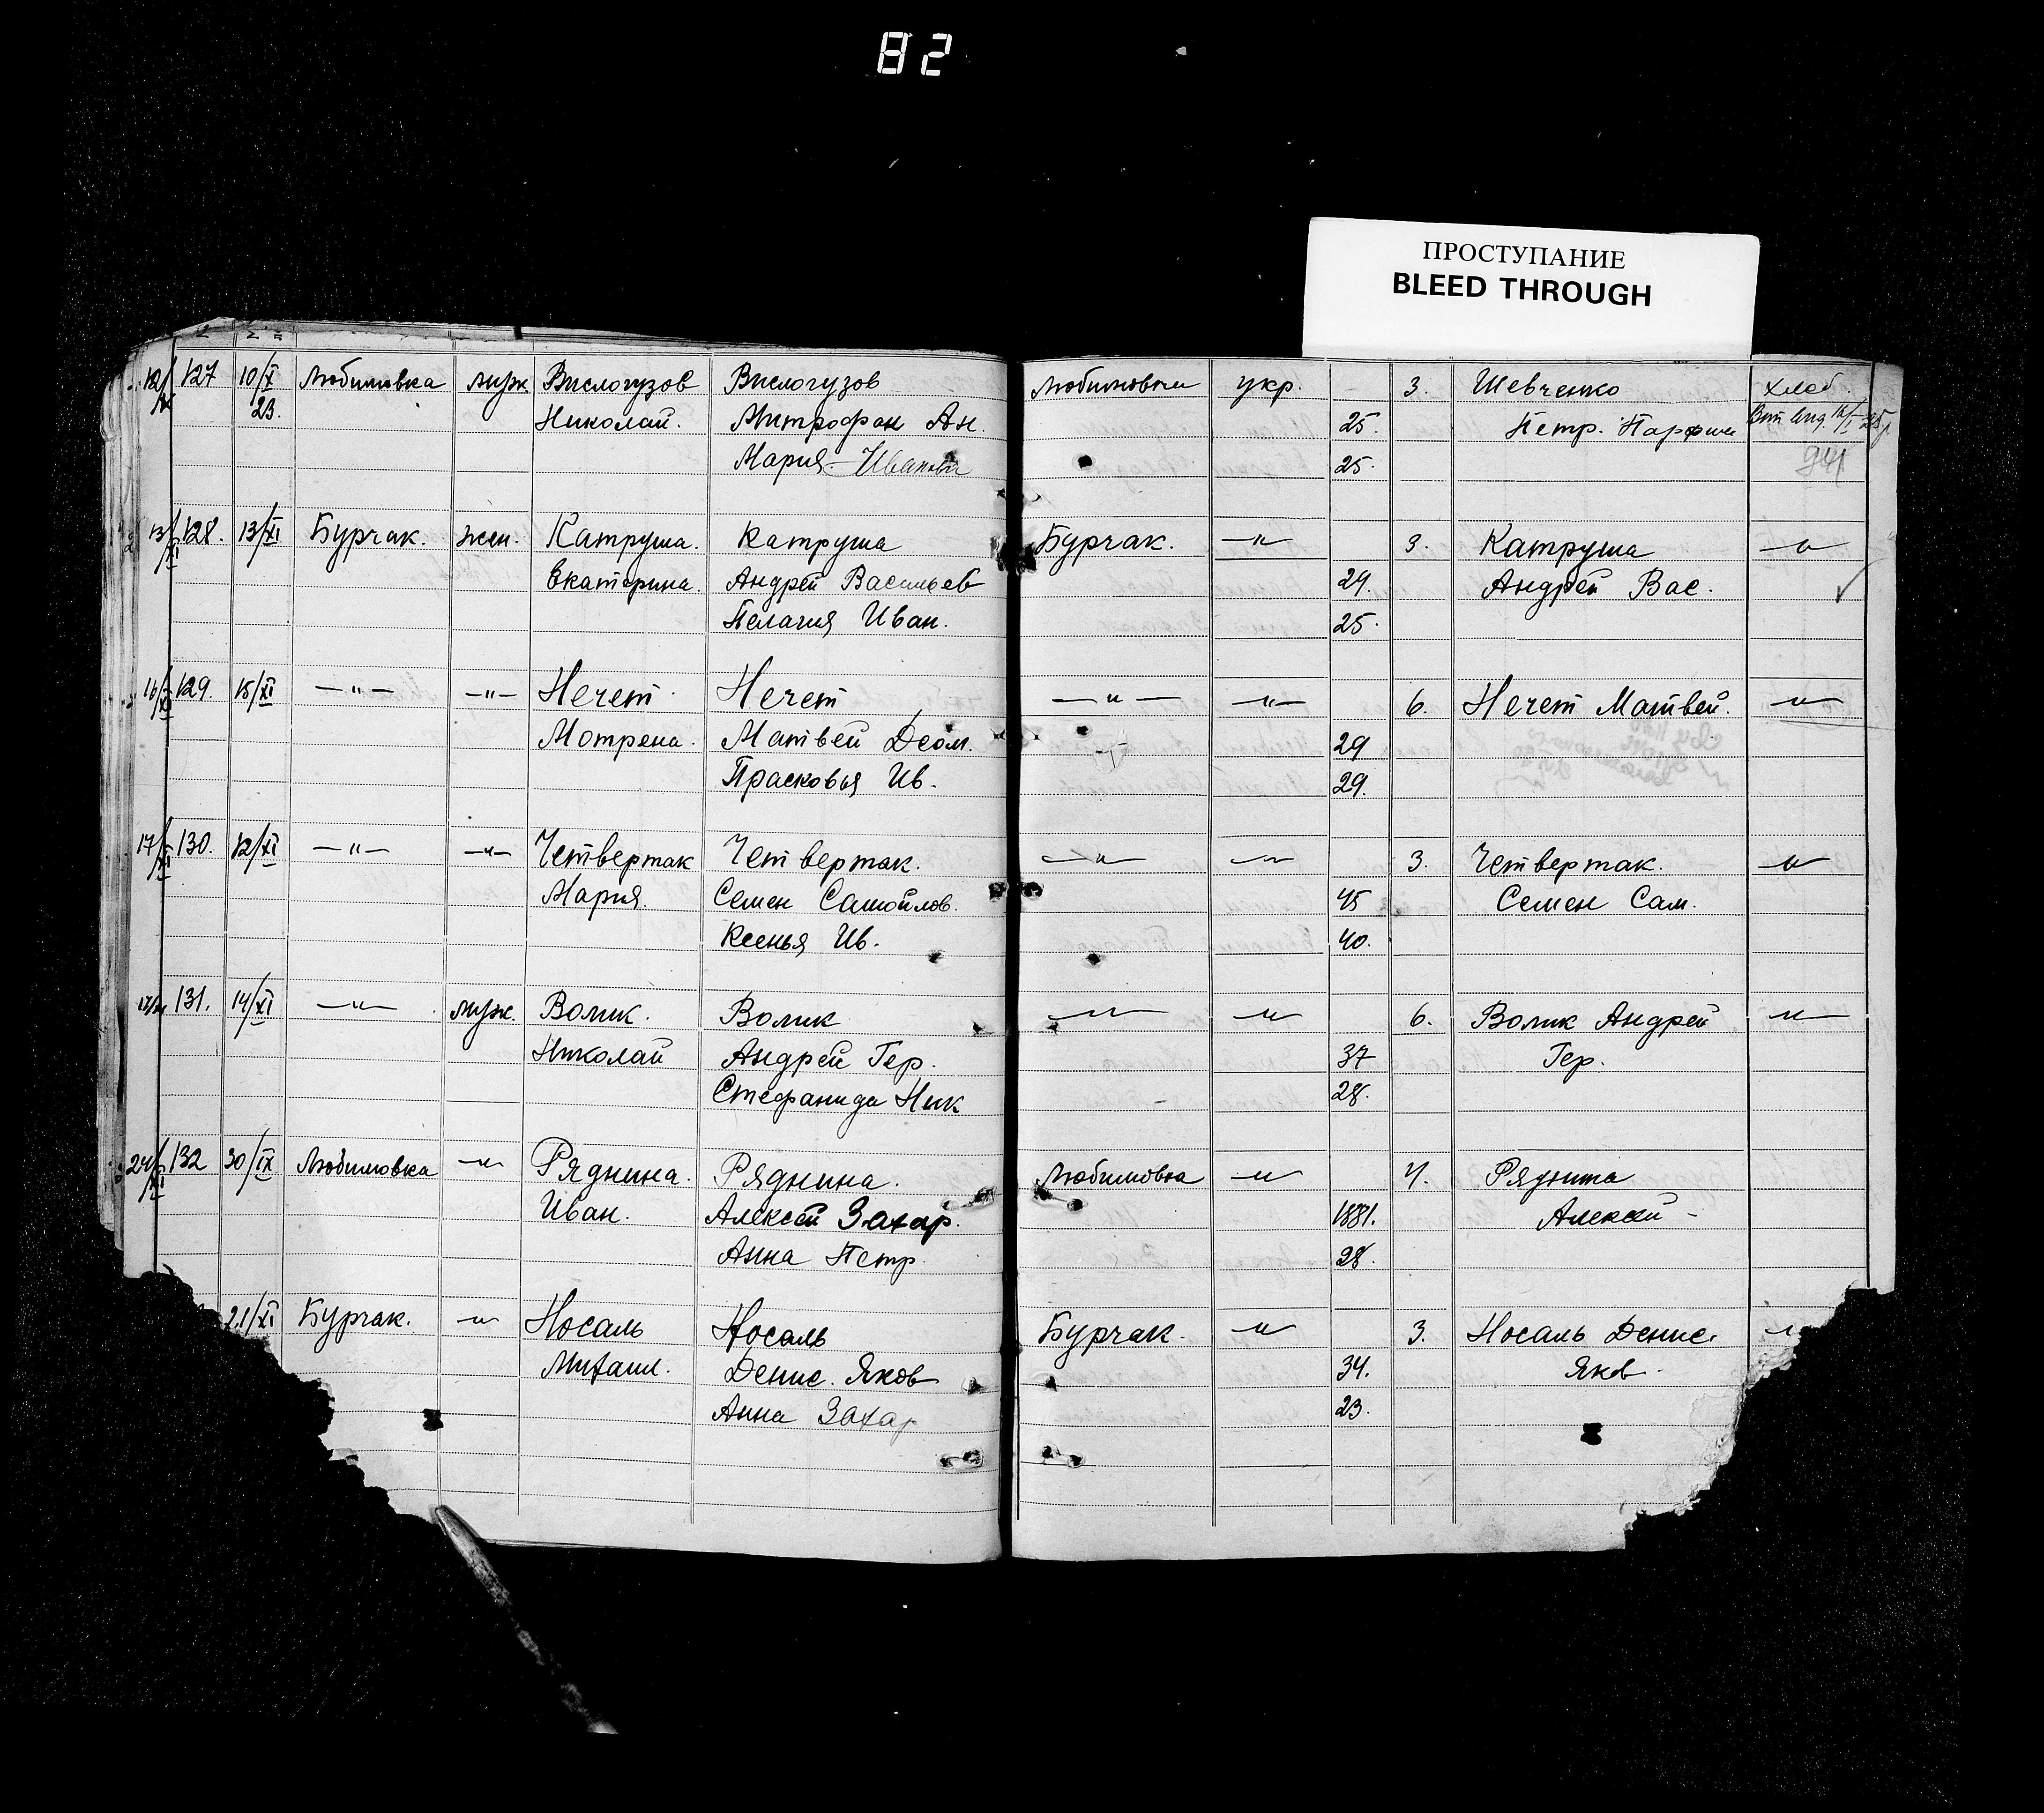 82
ПРОСТУПАНИЕ
BLEED THROUGH
127 10/X Любимовка муж Вислогузов Вислогузов укр. 3. Шевченко хлеб.
23. Николай. Митрофан Ан. 25. Петр.
Мария Иванова 25.
13/XI 128. 13/XI Бурчак. жен. Катруша. Катруша Бурчак. —"— 3. Катруша —"—
Екатерина. Андрей Васильев 24. Андрей Вас.
Пелагия Иван. 25.
16/XI 129. 15/XI —"— —"— Нечет. Нечет —"— —"— 6. Нечет Матвей. —"—
Мотрена. Матвей Деом. 29
Прасковья Ив. 29.
17/XI 130. 12/XI —"— —"— Четвертак Четвертак. —"— —"— 3. Четвертак. —"—
Мария. Семен Самойлов. 45 Семен Сам.
Ксенья Ив. 40.
131. 14/XI —"— муж. Волик. Волик —"— —"— 6. Волик Андрей —"—
Николай Андрей Гер. 37 Гер.
Стефанида Ник 28.
24/XI 132 30/IX Любимовка —"— Ряднина. Ряднина. Любимовка —"— 4.
Иван. Алексей Захар. 1881. Алексей -
Анна Петр. 28.
21/XI Бурчак. —"— Носаль Носаль Бурчак. —"— 3. Носаль Денис.
Михаил. Денис. Яков 34. Яков.
Анна Захар 23.